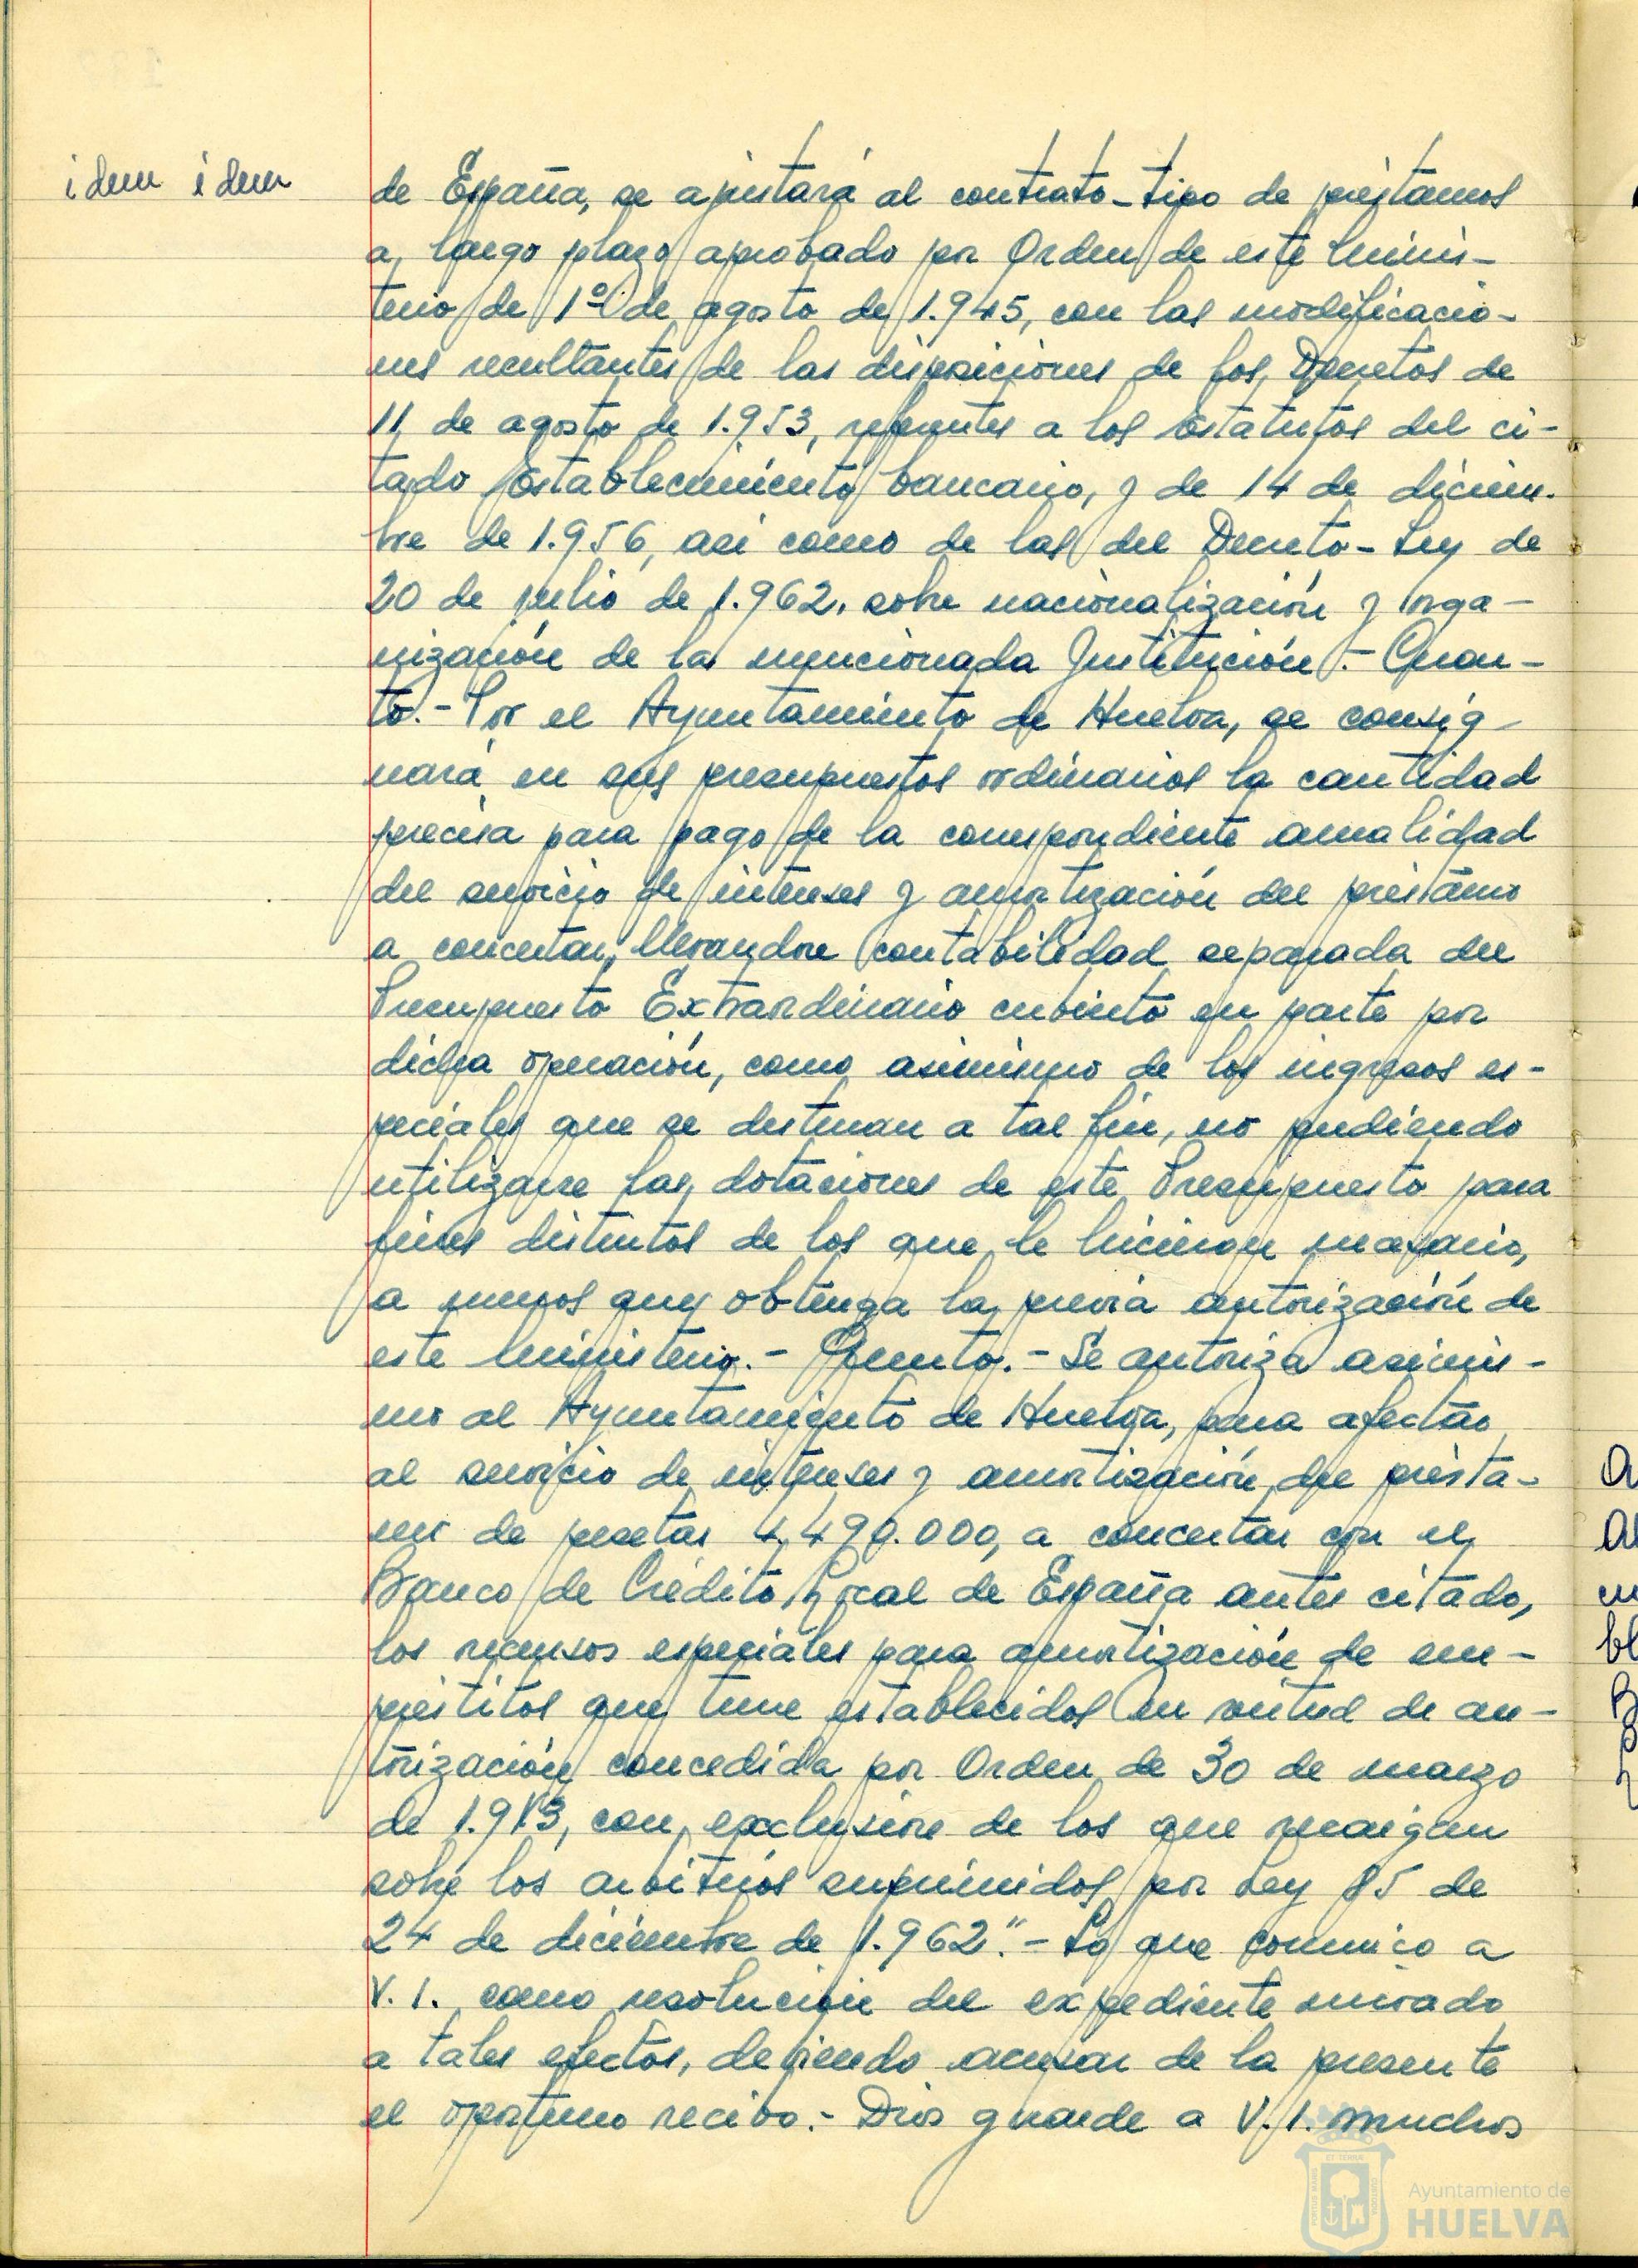 idem idem
de España, se ajustará al contrato-tipo de préstamos
a largo plazo aprobado por Orden de este Minis-
terio de 1º de agosto de 1.945, con las modificacio-
nes resultantes de las disposiciones de los Decretos de
11 de agosto de 1.953, referentes a los Estatutos del ci-
tado Establecimiento bancario, y de 14 de diciem-
bre de 1.956, asi como de las del Decreto-Ley de
20 de julio de 1.962, sobre nacionalización y orga-
nización de la mencionada Institución.- Cuar-
to.- Por el Ayuntamiento de Huelva, se consig-
nará en sus presupuestos ordinarios la cantidad
precisa para pago de la correspondiente anualidad
del servicio de intereses y amortización del préstamo
a concertar, llevandose contabilidad separada del
Presupuesto Extraordinario cubierto en parte por
dicha operación, como asimismo de los ingresos es-
peciales que se destinan a tal fin, no pudiendo
utilizarse las dotaciones de este Presupuesto para
fines distintos de los que le hicieron necesario,
a menos que obtenga la previa autorización de
este Ministerio.- Quinto.- Se autoriza asimis-
mo al Ayuntamiento de Huelva, para afectar
al servicio de intereses y amortización del présta-
mo de pesetas 4.490.000, a concertar con el
Banco de Crédito Local de España antes citado,
los recursos especiales para amortización de em-
préstitos que tiene establecidos en virtud de au-
torización concedida por Orden de 30 de marzo
de con exclusión de los que recaigan
sobre los arbitrios suprimidos por Ley 85 de
24 de diciembre de 1.962".- Lo que comunico a
V.I. como resolución del expediente enviado
a tales efectos, debiendo acusar de la presente
el oportuno recibo.- Dios guarde a V.I. muchos
Ayuntamiento de
HUELVA